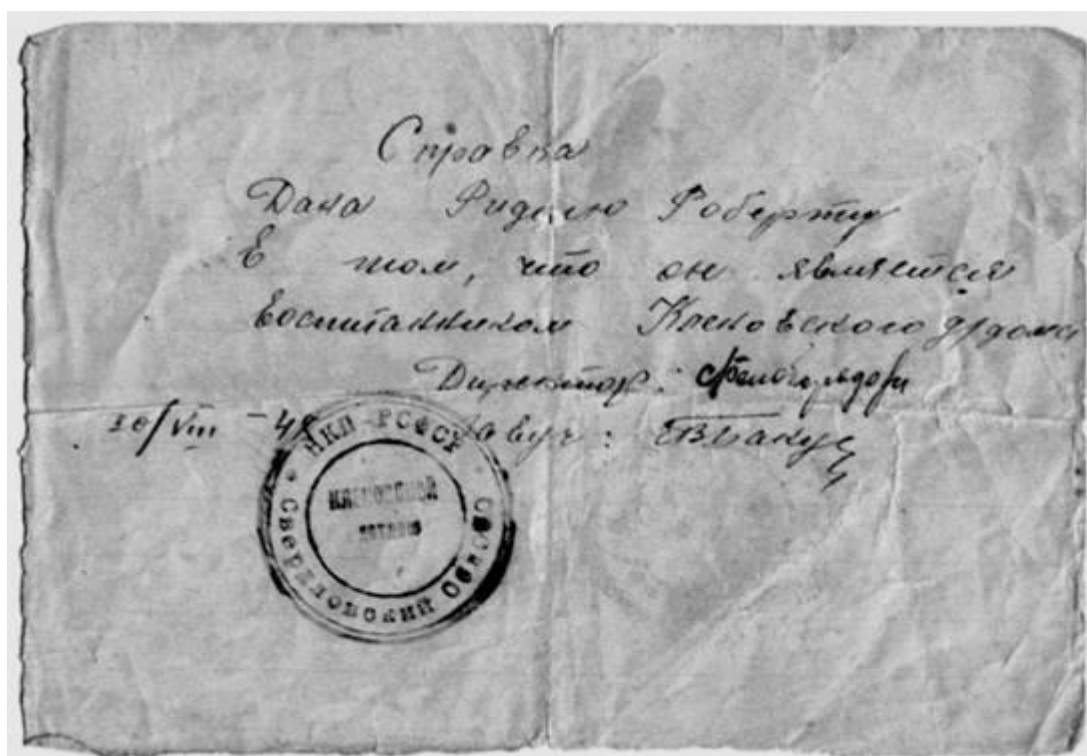 Справка
Дана Ридгию Роберту
в том, что он является
воспитанником Кленовского д/дома
Директор:
Завуч:
10/VIII - 48
НКП РСФСР
Свердловский ОблОНО
Кленовской
детдом